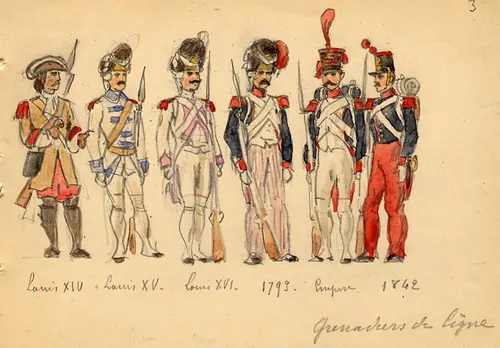 3
Louis XIV. Louis XV. Louis XVI. 1793. Empire 1842
Grenadiers de ligne